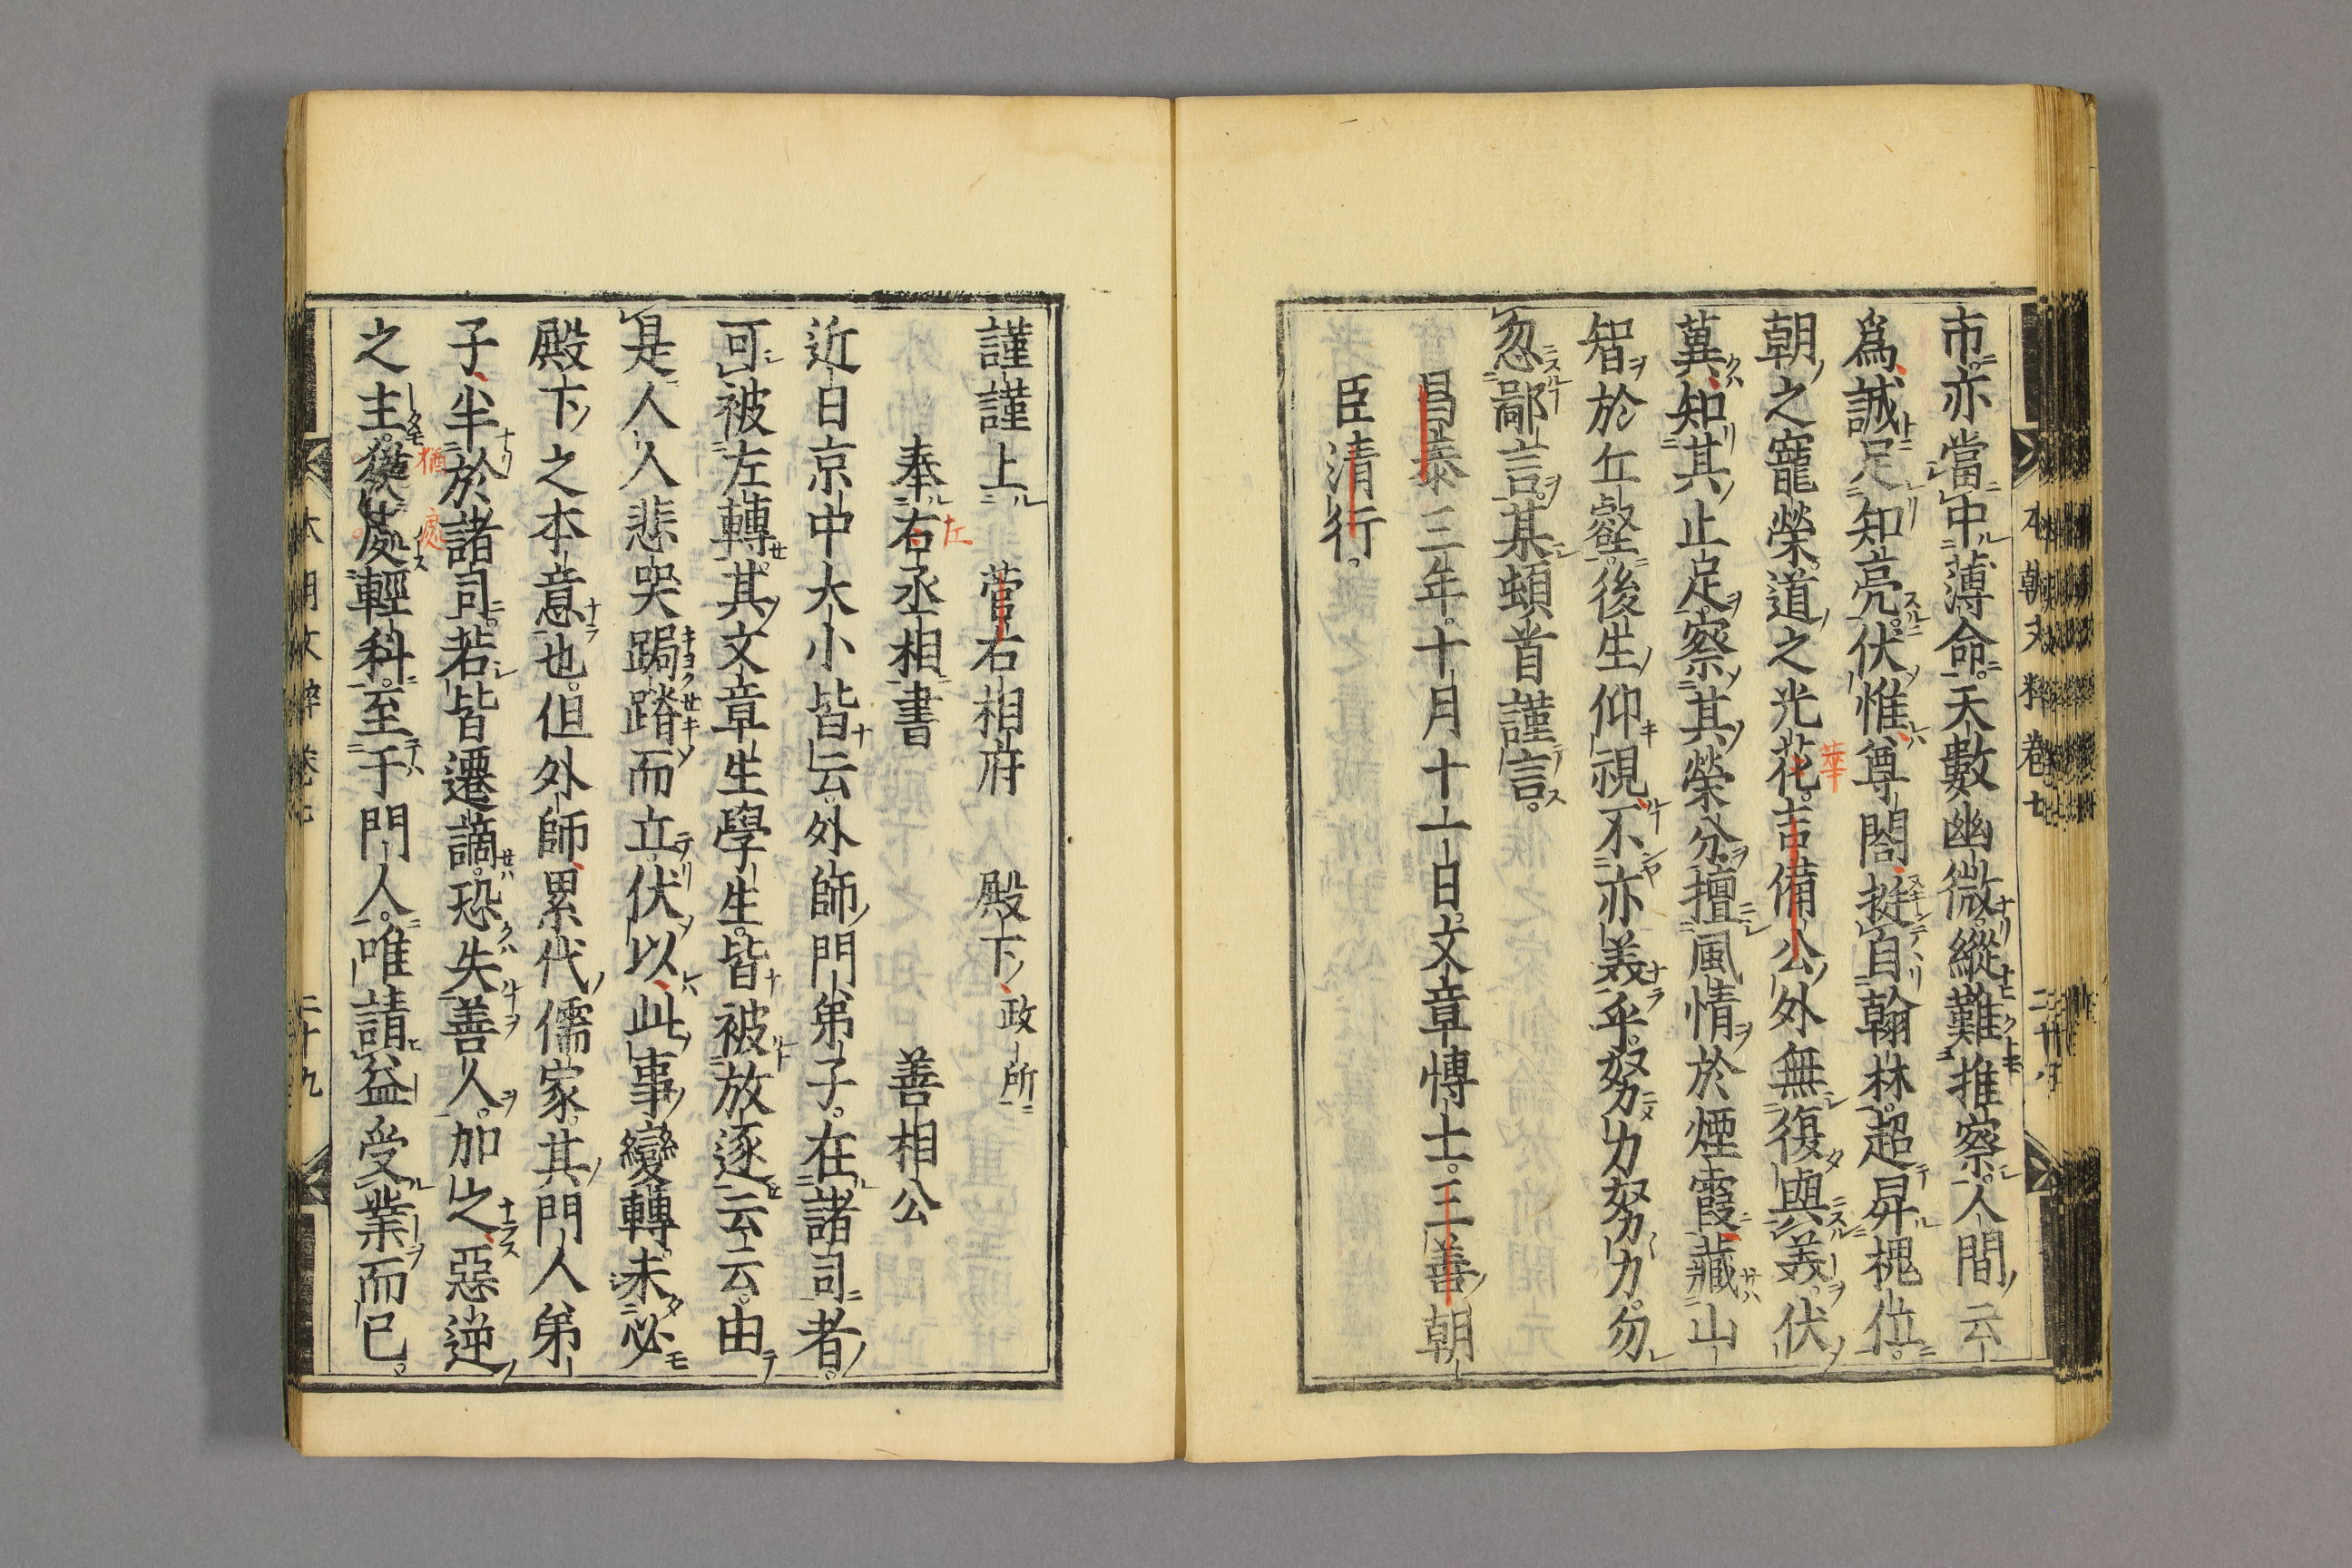 市亦當中薄命天數幽微縱難推察人間云
爲誠足知亮伏惟尊閤挺自翰林超昇槐位
朝之寵榮道之光花吉備公外無復與美伏
冀知其止足察其榮分擅風情於煙霞藏山
智於丘壑後生仰視不亦美乎努力努力勿
忽鄙言某頓首謹言
昌泰三年十月十一日文章博士三善朝
臣清行
謹謹上 菅右相府 殿下政所
奉右丞相書 善相公
近日京中大小皆云外師門弟子在諸司者
可被左轉其文章生學生皆被放逐云云由
是人人悲哭跼蹐而立伏以此事變轉未必
殿下之本意也但外師累代儒家其門人弟
子半於諸司若皆遷謫恐失善人加之惡逆
之主猶處輕科至于門人唯請益受業而已
華
左
猶
處
本朝文粹卷七
本朝文粹卷七 二十九